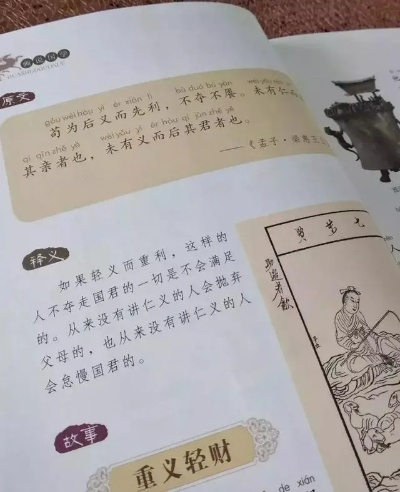 原文
gǒu wéi hòu yì ér xiān lì bù duó bú yàn
苟为后义而先利，不夺不餍。未有仁而
qí qīn zhě yě wèi yǒu yì ér hòu qí jūn zhě yě
其亲者也，未有义而后其君者也。
——《孟子·梁惠王
释义
如果轻义而重利，这样的
人不夺走国君的一切是不会满足
的。从来没有讲仁义的人会抛弃
父母的，也从来没有讲仁义的人
会怠慢国君的。
故事
重义轻财
de xián